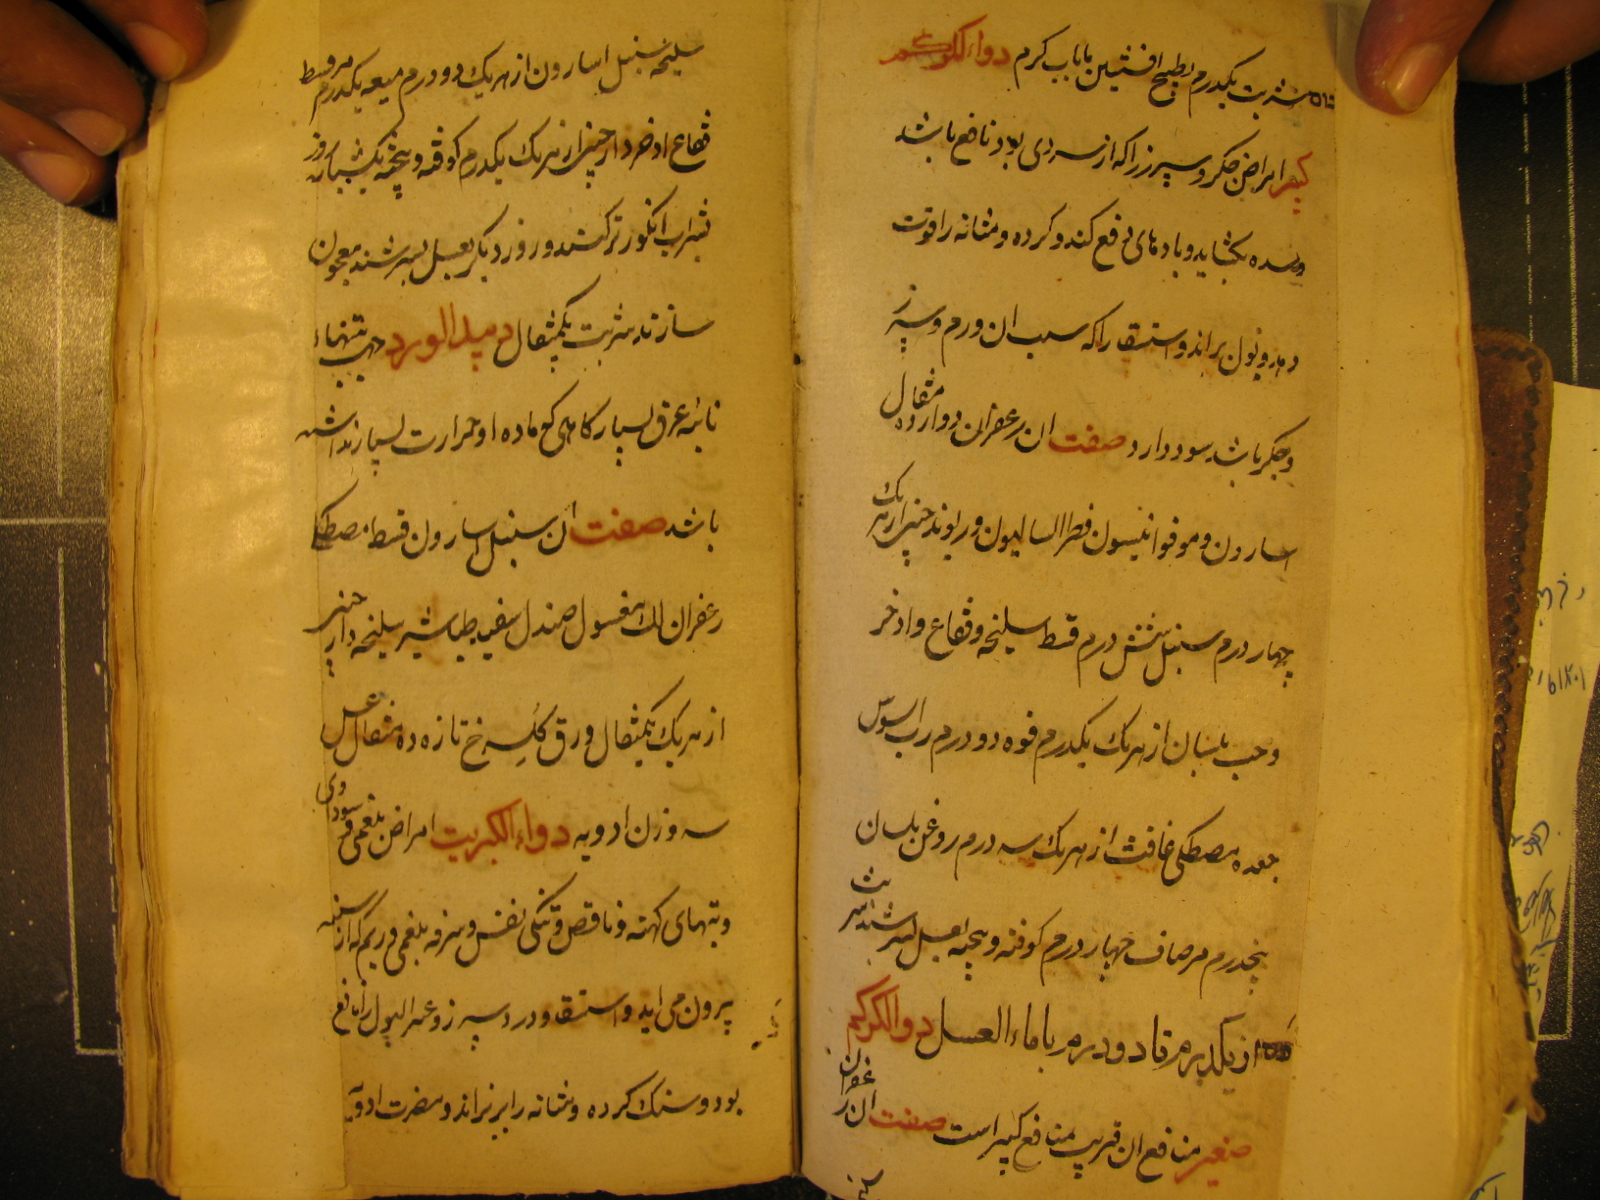 شربت یکدرم بطبیخ افسنتین یا باب کرم دواء الکرکم
کبیر امراض جکر و سپرز را که از سردی بود نافع باشد
و سده بکشاید و بادهای دفع کند و کرده و مثانه را قوت
دهد و بول براند و استسقا را که سبب ان ورم و سپرز
و جکر باشد سود دارد صفت ان زعفران دوازده مثقال
اسارون و مو فو انیسون فطراسالیون و ریوند چینی از هریک
چهار درم سنبل شش درم قسط سلیخه و فقاح و اذخر
و حب بلسان از هریک یکدرم فوه دو درم رب السوس
جعده مصطکی غافث از هریک سه درم روغن بلسان
پنجدرم مر صاف چهار درم کوفته و بیخته بعسل بسرشند شربت
از یکدرم تا دو درم با ماء العسل دواء الکرکم
صغیر منافع ان قریب منافع کبیر است صفت ان زعفران
سلیخه سنبل اسارون از هریک دو درم میعه یکدرم مر قسط
فقاع اذخر دارچینی از هریک یکدرم کوفته و بیخته یک شبانه روز
بشراب انکور تر کنند و روز دیکر بعسل بسرشند معجون
سازند شربت یکمثقال دبید الورد جهت تبهاء
نائبه عرق بسیار کاهی که ماده او حرارت بسیار نداشته
باشد صفت ان سنبل اسارون قسط مصطکی
زعفران لک مغسول صندل سفید طباشیر سلیخه دارچینی
از هریک یکمثقال ورق کل سرخ تازه ده مثقال عسل
سه وزن ادویه دواء الکبریت امراض بلغمی و سوداوی
و تبهای کهنه و ناقص و تنکی نفس و سرفه بلغمی و ریم که از سینه
بیرون می اید و استسقا و درد سپرز و عسر البول را نافع
بود و سنک کرده و مثانه را بریزاند و مضرت ادویه